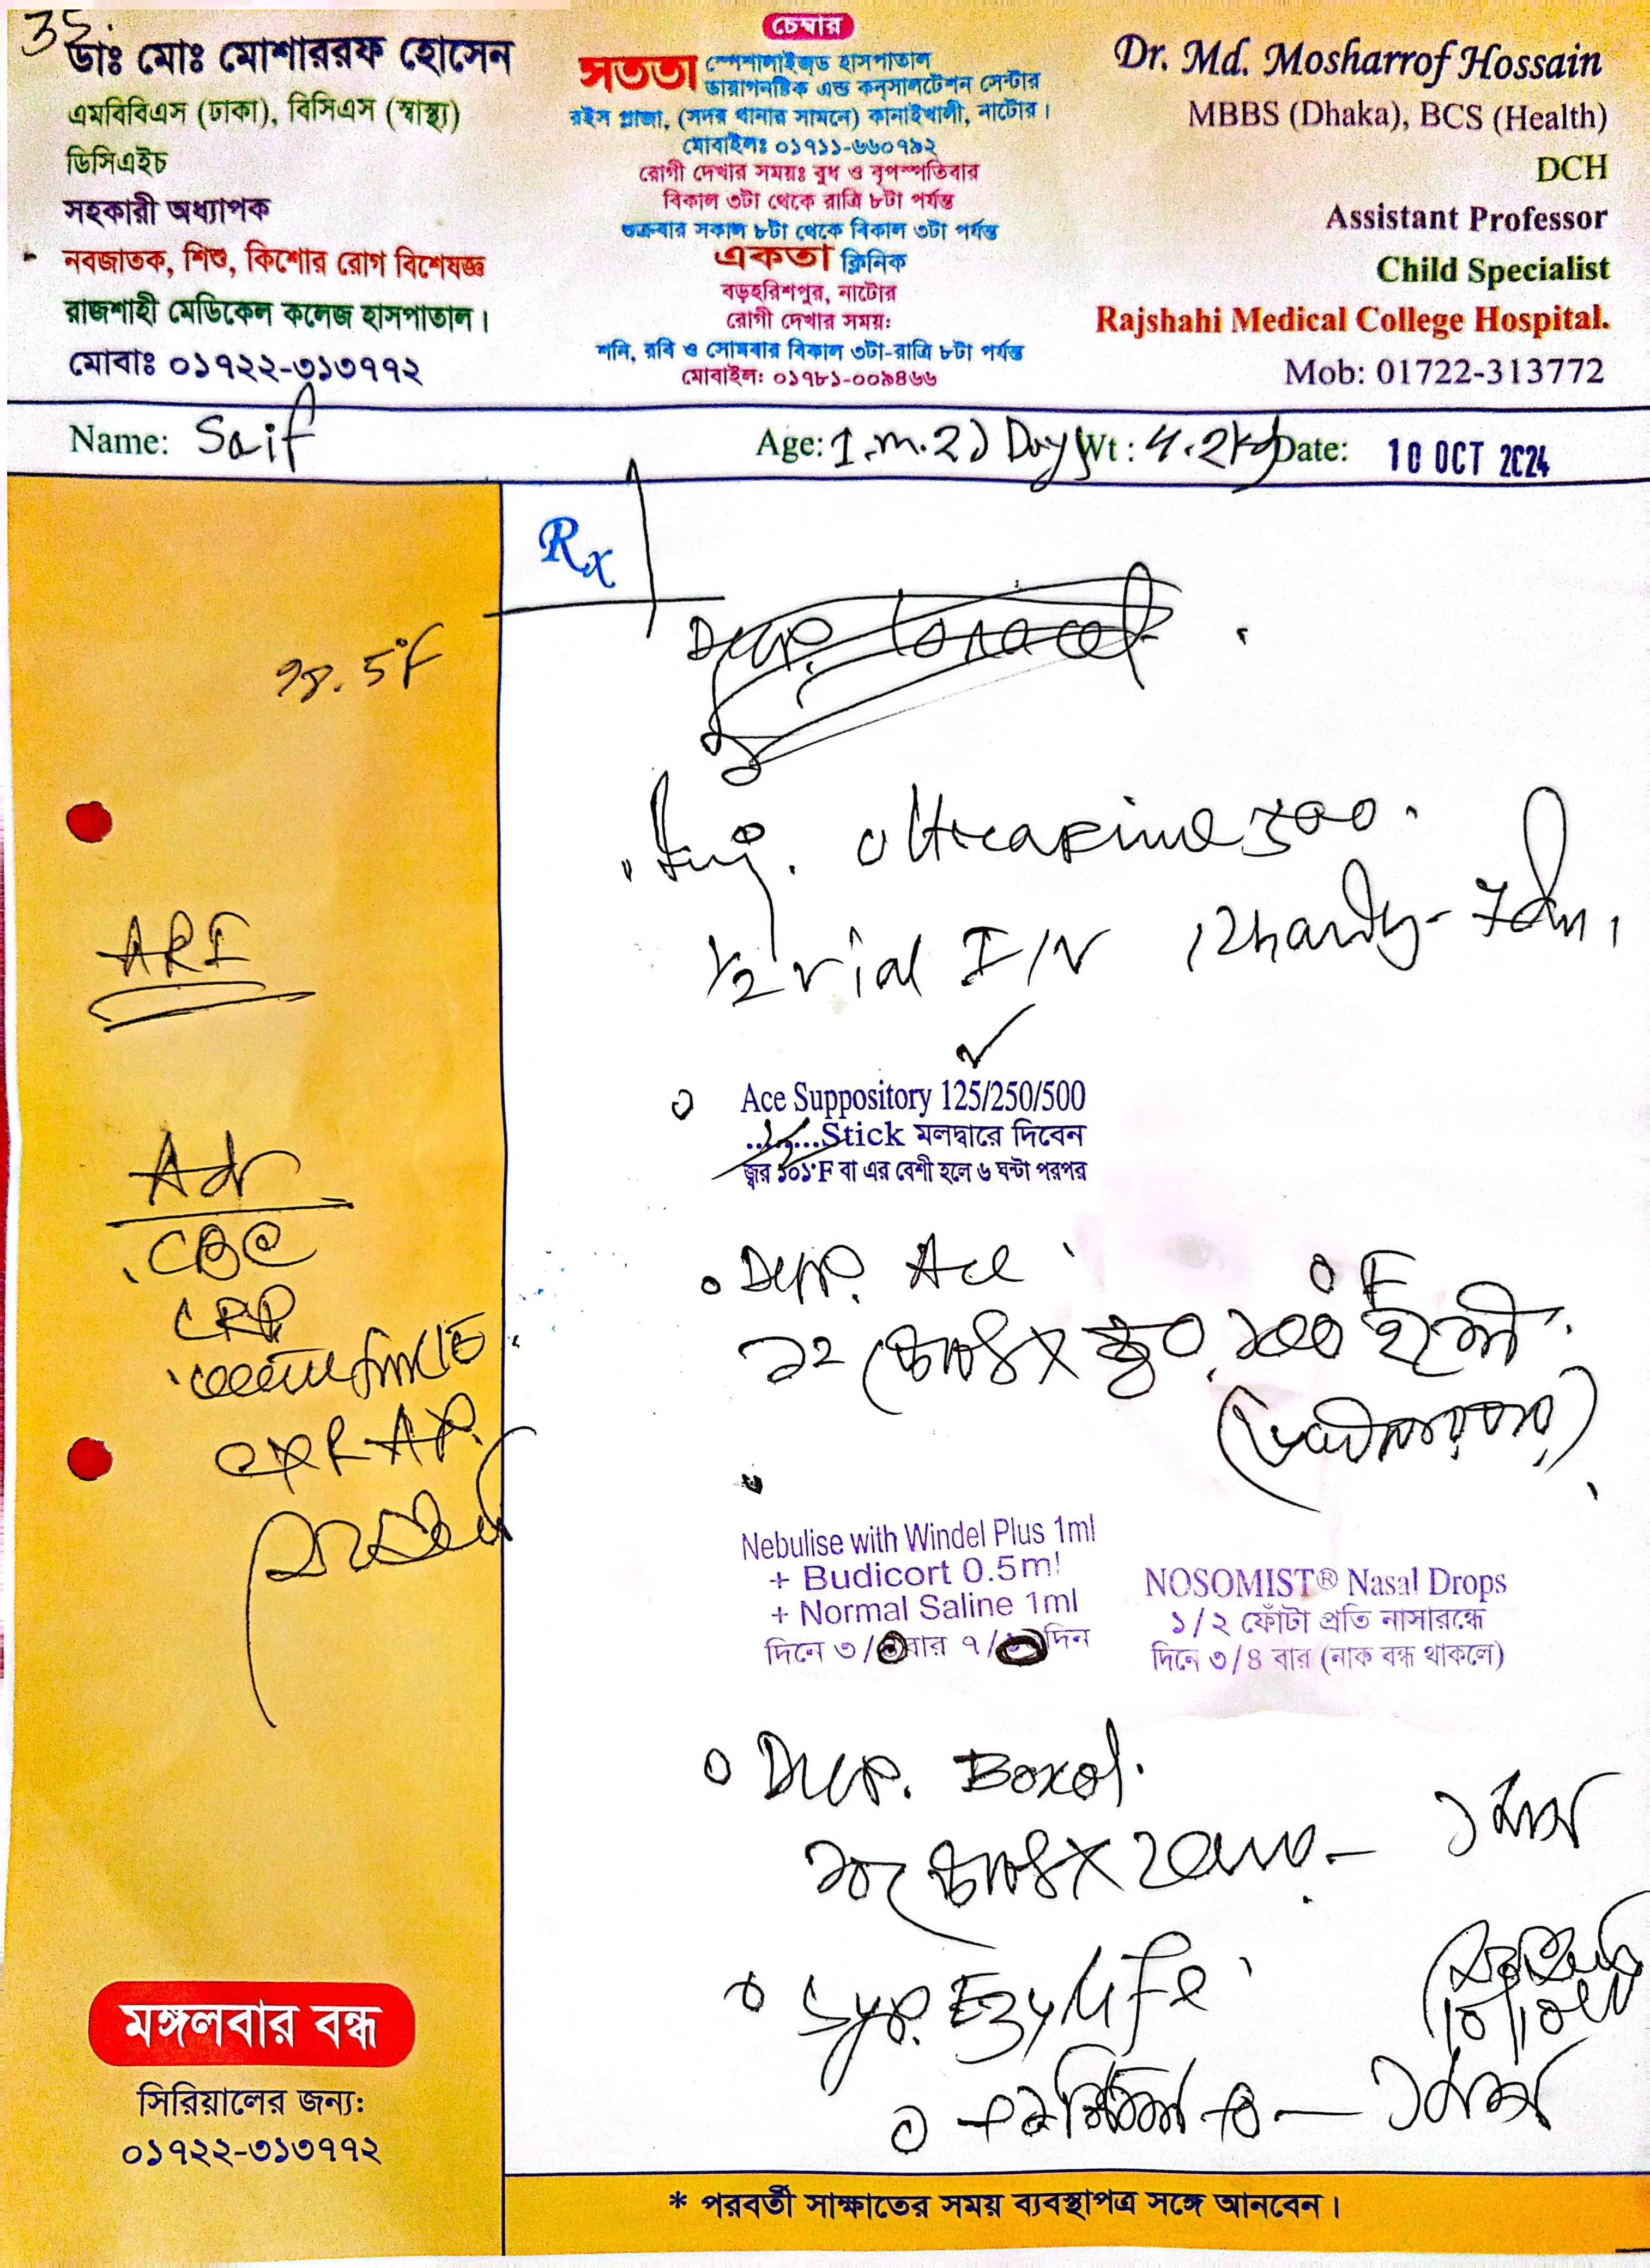 35.
ডাঃ মোঃ মোশাররফ হোসেন
এমবিবিএস (ঢাকা), বিসিএস (স্বাস্থ্য)
ডিসিএইচ
সহকারী অধ্যাপক
নবজাতক, শিশু, কিশোর রোগ বিশেষজ্ঞ
রাজশাহী মেডিকেল কলেজ হাসপাতাল।
মোবাঃ ০১৭২২-৩১৩৭৭২
চেম্বার
সততা স্পেশালাইজড হাসপাতাল
ডায়াগনষ্টিক এন্ড কনসালটেশন সেন্টার
রইস প্লাজা, (সদর থানার সামনে) কানাইখালী, নাটোর।
মোবাইলঃ ০১৭১১-৬৬০৭৯২
রোগী দেখার সময়ঃ বুধ ও বৃহস্পতিবার
বিকাল ৩টা থেকে রাত্রি ৮টা পর্যন্ত
শুক্রবার সকাল ৮টা থেকে বিকাল ৩টা পর্যন্ত
একতা ক্লিনিক
বড়হরিশপুর, নাটোর
রোগী দেখার সময়:
শনি, রবি ও সোমবার বিকাল ৩টা-রাত্রি ৮টা পর্যন্ত
মোবাইল: ০১৭৮১-০০৯৪৬৬
Dr. Md. Mosharrof Hossain
MBBS (Dhaka), BCS (Health)
DCH
Assistant Professor
Child Specialist
Rajshahi Medical College Hospital.
Mob: 01722-313772
Name: Saif Age: 1.m.21 Days Wt: 4.2kg Date: 10 OCT 2024
Rx
98.5°F
ARI
Adv
CBC
CRP
CXR A/P.
Inj.
1/2 vial I/V 12hourly - 7days
Ace Suppository 125/250/500
1/2 Stick মলদ্বারে দিবেন
জ্বর ১০১°F বা এর বেশী হলে ৬ ঘন্টা পরপর
Drop. Ace
১২ ফোঁটা x জ্বর ১০০°F হলে
Nebulise with Windel Plus 1ml
+ Budicort 0.5ml
+ Normal Saline 1ml
দিনে ৩/ বার ৭/ দিন
NOSOMIST® Nasal Drops
১/২ ফোঁটা প্রতি নাসারন্ধ্রে
দিনে ৩/৪ বার (নাক বন্ধ থাকলে)
Drop. Boxol
১০ ফোঁটা x ২ বার - ১ মাস
Syp. Ezylife
১ মাস
মঙ্গলবার বন্ধ
সিরিয়ালের জন্য:
০১৭২২-৩১৩৭৭২
* পরবর্তী সাক্ষাতের সময় ব্যবস্থাপত্র সঙ্গে আনবেন।